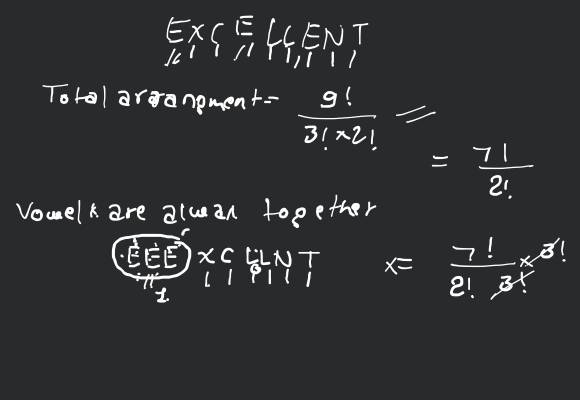 EXCELLENT
Total arrangment = 9! / 3! × 2!
= 7! / 2!
Vowels are alway together
EEE X C L L N T x = 7! / 2! 3! × 3!
1